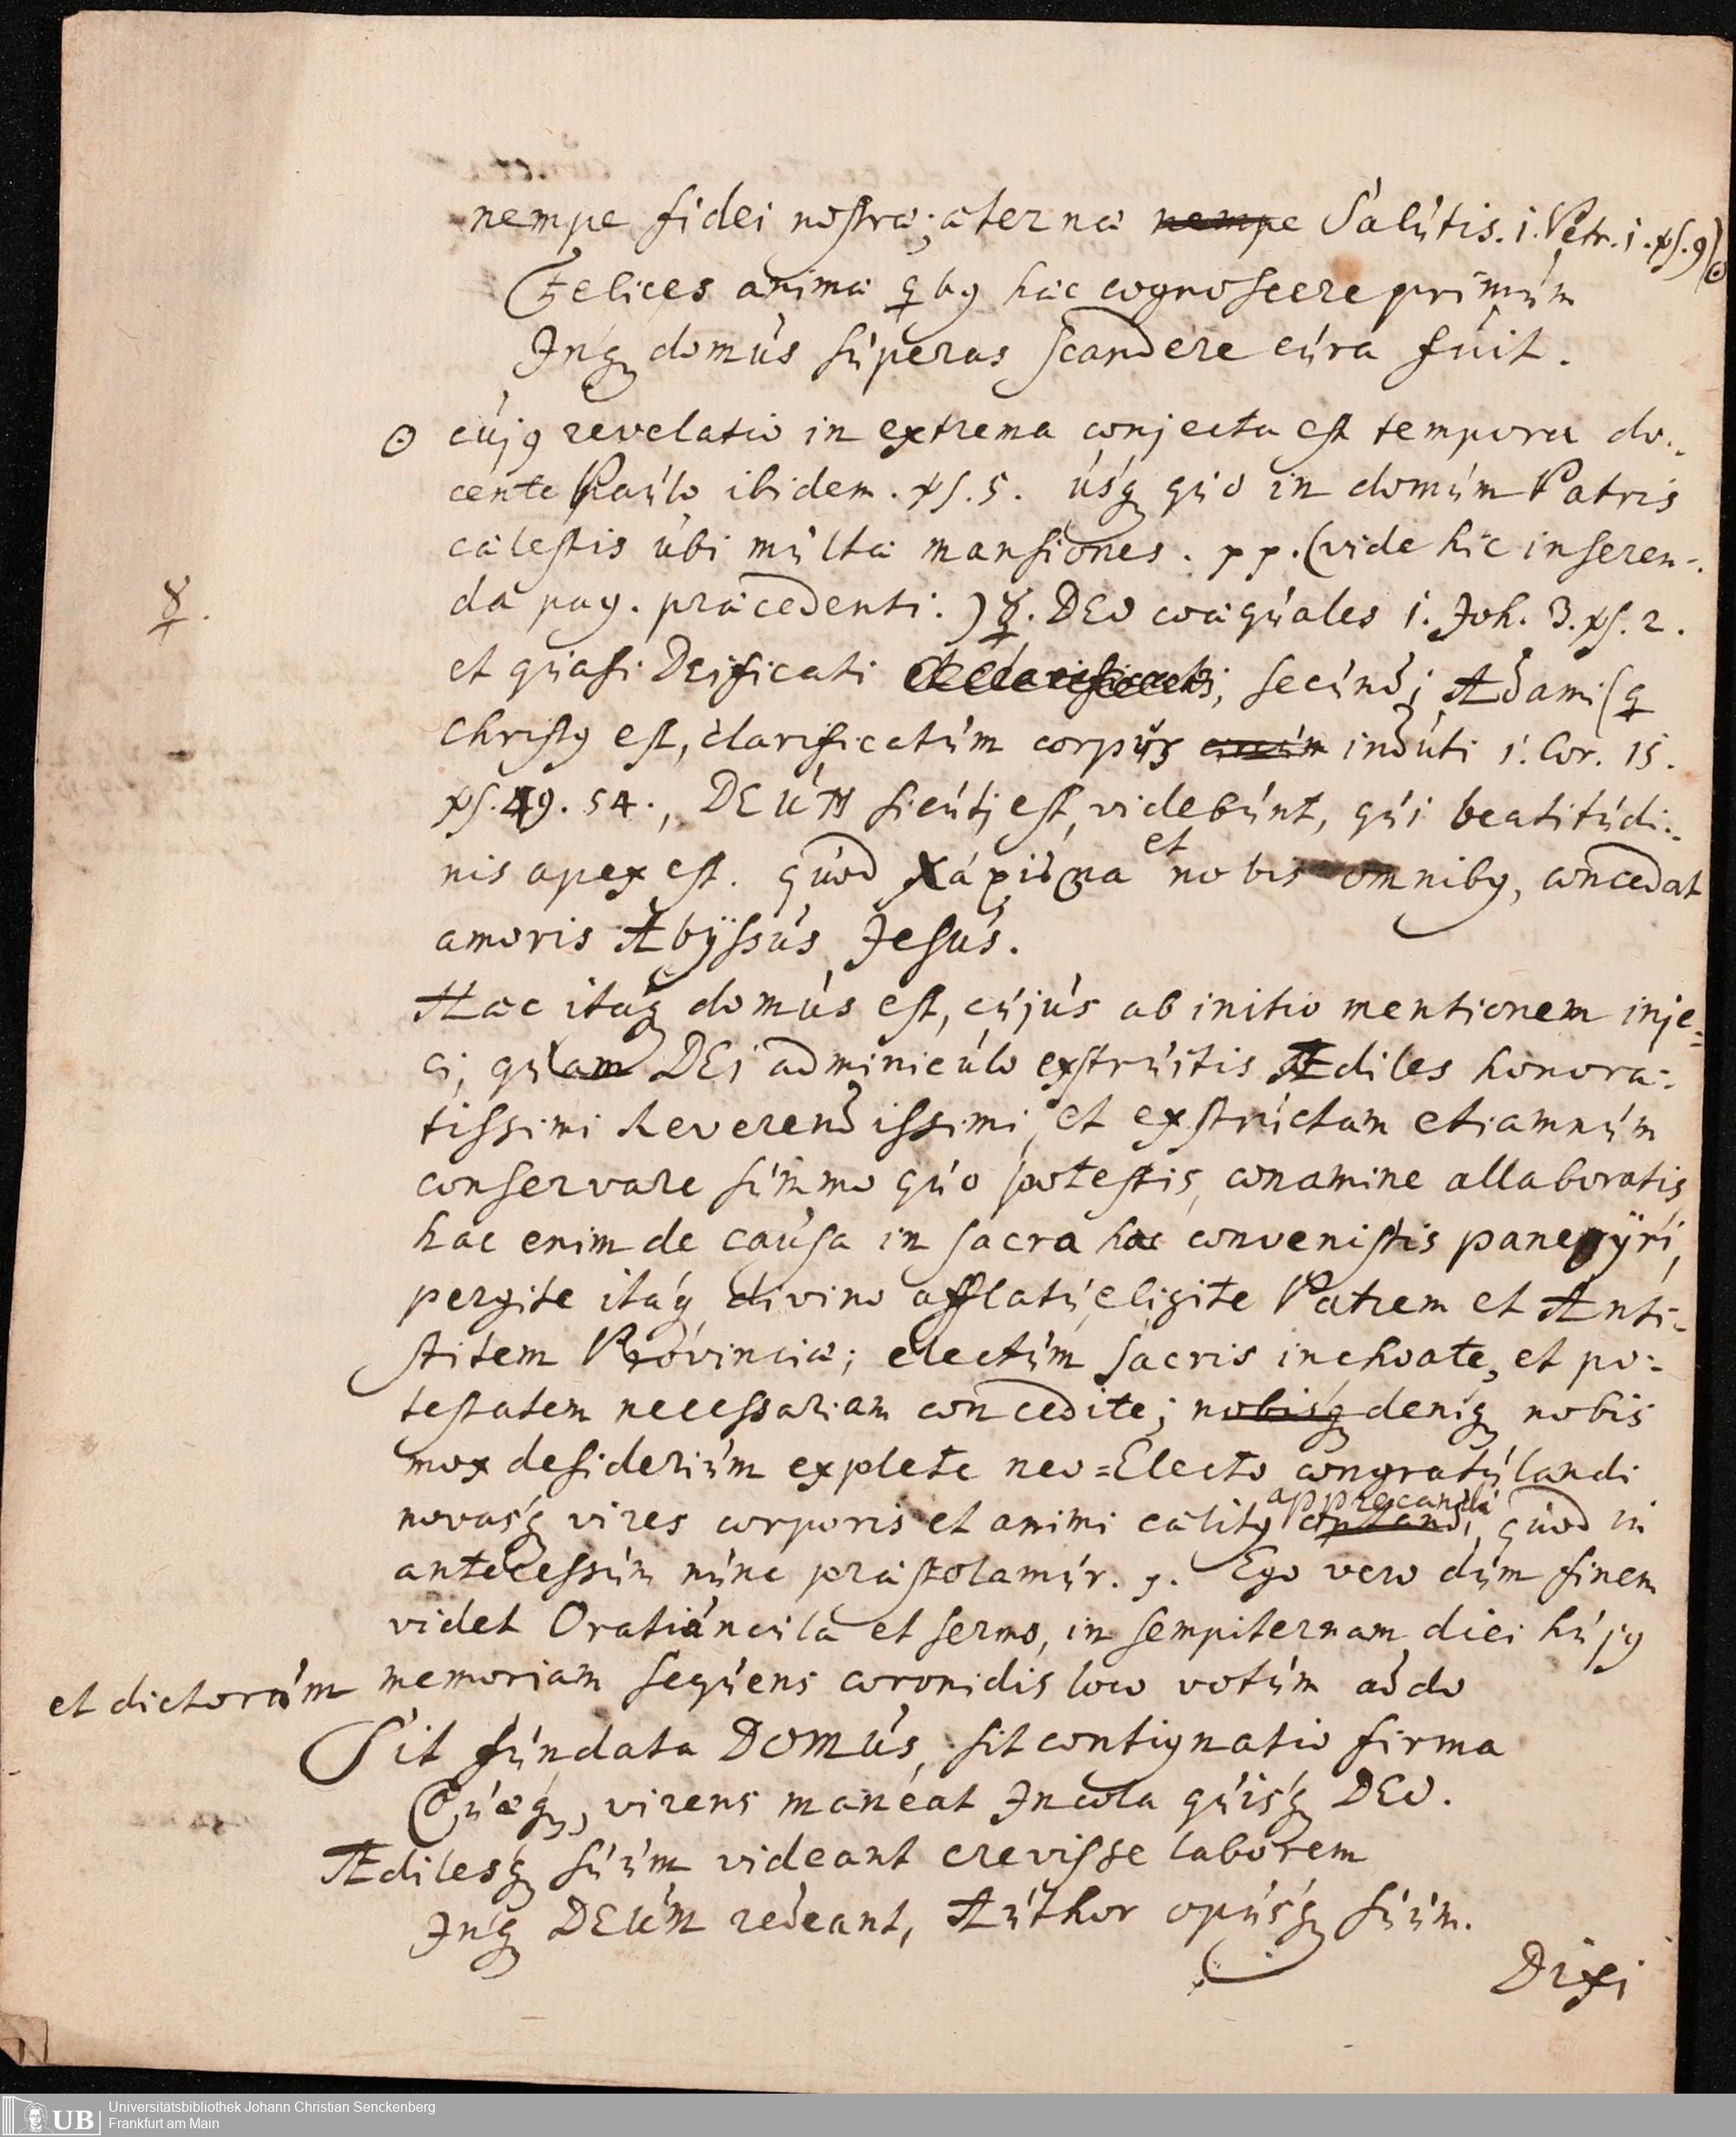 nempe fidei nostræ; æternæ nempe Salútis. 1. Petr. 1. vs. 9) ☉
Felices animæ qbꝯ hæc cognoscere primúm
Inq́ domús súperas scandere cúra fúit.
☉ cújꝯ revelatio in extrema conjecta est tempora do-
cente Paúlo ibidem. vs. 5. úsq́ qúo in domúm Patris
cælestis úbi múltæ mansiones. pp. (vide hic inseren-
da pag. præcedenti.) ☿. DEO coæqúales 1. Joh. 3. vs. 2.
☿.
et qúasi Deificati et clarificati, secúndi Adami (q
Christꝯ est, clarificatúm corpús indúti 1. Cor. 15.
vs. 49. 54., DEÚM sicúti est, videbúnt, qúi beatitúdi-
nis apex est. qúod χάρισμα et nobis omnibꝯ, concedat
amoris Abÿssús Jesús.
Hæc itaq́ domús est, cújús ab initio mentionem inje-
ci, qúam DEi adminicúlo exstrúitis Ædiles honora-
tissimi Reverendissimi, et exstrúctam etiamnúm
conservare súmmo qúo potestis, conamine allaboratis,
hac enim de caúsa in sacra hac convenistis panegÿri,
pergite itaq́, divino afflatú, eligite Patrem et Anti-
stitem Provinciæ; electúm sacris inchoate, et po-
testatem necessariam concedite; nobisq́ deniq́ nobis
mox desideriúm explete neo=Electo congratúlandi
novasq́ vires corporis et animi cælitꝯ optandi, apprecandi qúod in
antecessúm núnc præstolamúr. Ego vero dúm finem
videt Oratiúncúla et sermo, in sempiternam diei hújꝯ
et dictorúm memoriam seqúens coronidis loco votúm addo
Sit fúndata DOMÚS, sit contignatio firma
Qúæq́, virens maneat Incola qúisq́ DEO.
Ædilesq́ súúm videant crevisse laborem
Inq́ DEÚM redeant, Aúthor opúsq́ súúm.
Dixi
UB Universitätsbibliothek Johann Christian Senckenberg
Frankfurt am Main